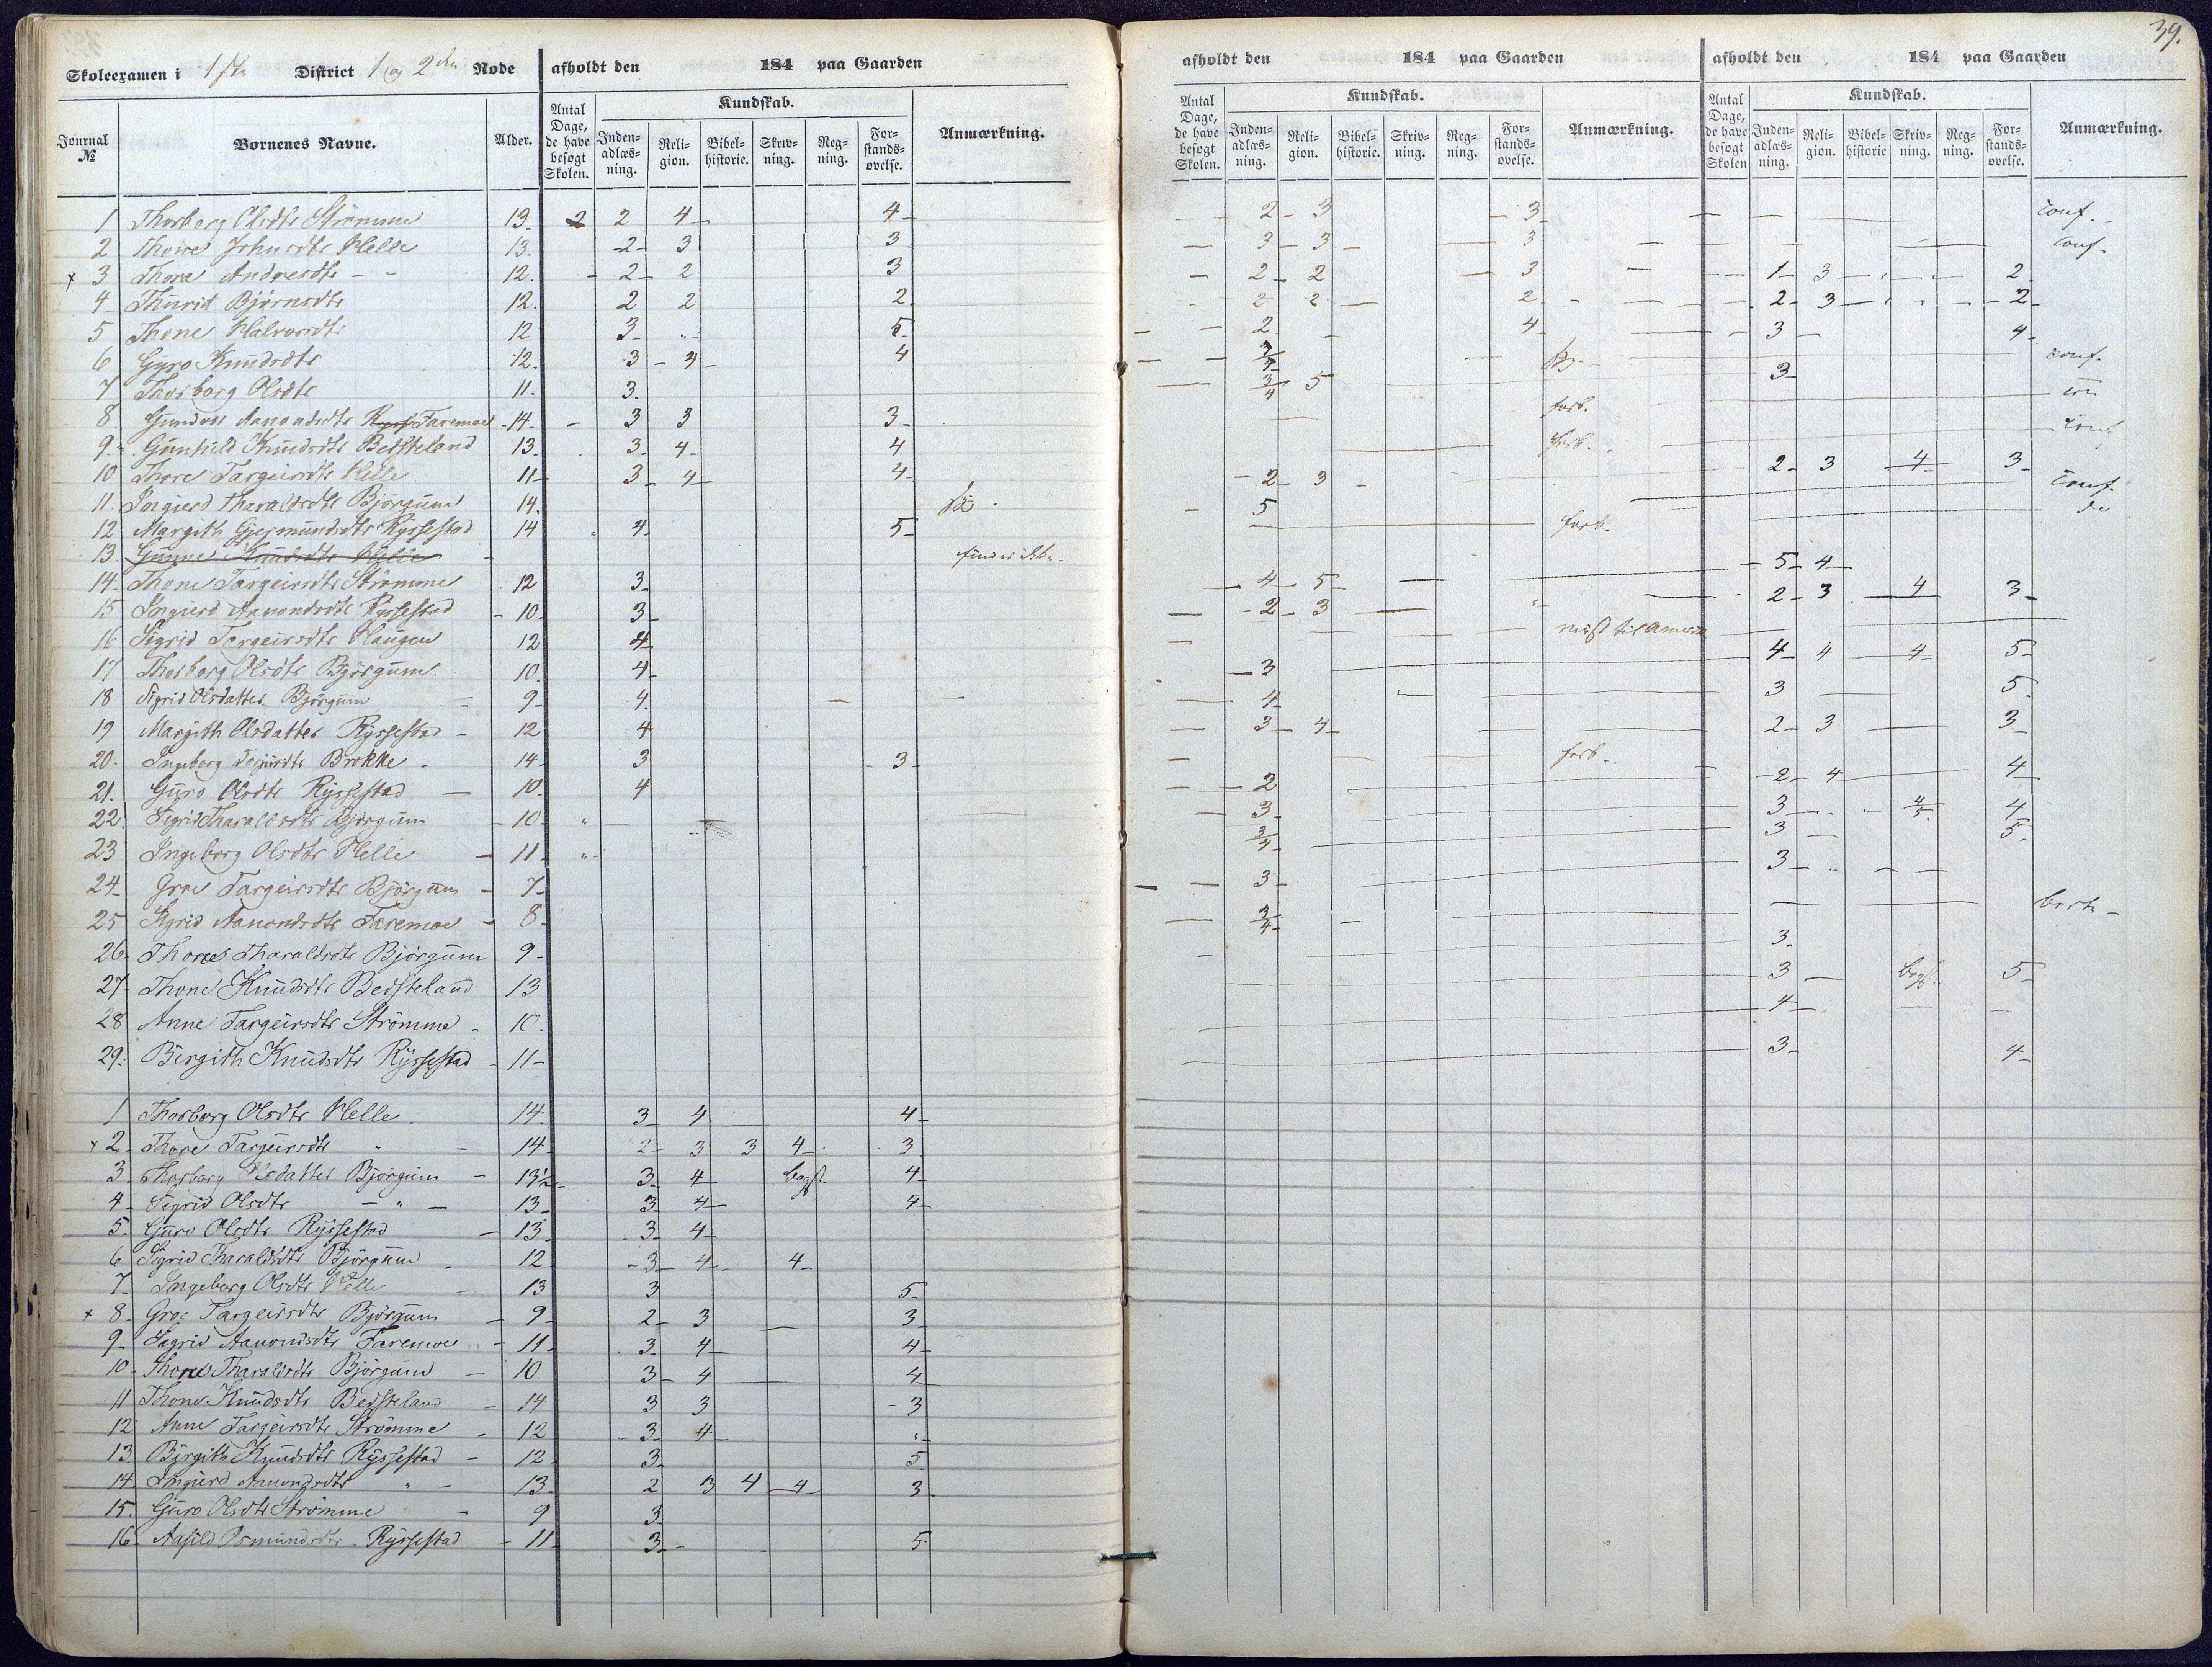 39.
Skoleexamen i 1ste District 1 og 2den Rode afholdt den 184 paa Gaarden
afholdt den 184 paa Gaarden afholdt den 184 paa Gaarden
Journal № Børnenes Navne. Alder. Antal Dage, de have besøgt Skolen. Kundskab. Inden-adlæs-ning. Reli-gion. Bibel-historie. Skriv-ning. Reg-ning. For-stands-øvelse. Anmærkning.
Antal Dage, de have besøgt Skolen. Kundskab. Inden-adlæs-ning. Reli-gion. Bibel-historie. Skriv-ning. Reg-ning. For-stands-øvelse. Anmærkning.
Antal Dage, de have besøgt Skolen Kundskab. Inden-adlæs-ning. Reli-gion. Bibel-historie Skriv-ning. Reg-ning. For-stands-øvelse. Anmærkning.
1 Thorborg Olsdtr Strömme 13. 2 2 4 4 2 3 3 conf.
2 Thone Johnsdtr Helle 13. 2 3 3 3 3 3 conf.
x 3 Thora Andresdtr - " 12. 2 2 3 2 2 3 1 3 2
4 Thurid Björnsdtr 12. 2 2 2 2 2 2 2 3 2
5 Thone Halvorsdtr 12 3 5 2 4 3 4
6 Gyro Knudsdtr 12. 3 4 4 3/4 conf.
7 Thorborg Olsdtr 11. 3. 3/4 5 3
8. Gundvor Aanondsdtr Faremoe 14. 3 3 3 forb.
9. Gunhild Knudsdtr Bedsteland 13. 3. 4. 4 forb. conf
10 Thore Targeirsdtr Helle 11 3 4 4 2 3 2 3 4 3
11. Ingierd Tharaldsdtr Björgum 14. 5 conf.
12 Margith Gjermundsdtr Ryssestad 14 4 5 forb. do
13 Gunne Knudsdtr Helle findes ikke
14. Thone Targeirsdtr Strömme 12 3 4 5 5 4
15 Ingierd Aanondsdtr Ryssestad 10 3 2 3 2 3 4 3
16 Sigrid Targeirsdtr Haugen 12 4 reist til America
17 Thorborg Olsdtr Björgum. 10. 4 3 4 4 4 5
18 Sigrid Olsdatter Björgum 9 4. 4 3 5
19 Margith Olsdatter Ryssestad 12 4 3 4 2 3 3
20. Ingeborg Brokke 14 3 3 forb.
21. Guro Olsdtr Ryssestad 10. 4 2 2 4 4
22 Sigrid Tharaldsdtr Björgum 10 " 3 3 4/5 4
23 Ingeborg Olsdtr Helle 11 " 3/4 3 5
24 Groe Targeirsdtr Björgum 7 3 3
25 Sigrid Aanondsdtr Faremoe 8 3/4 borte
26. Thone Tharaldsdtr Björgum 9 3
27 Thone Knudsdtr Bedsteland 13 3 5
28 Anne Targeirsdtr Strömme 10. 4
29. Bergith Knudsdtr Ryssestad 11 3 4
1 Thorborg Olsdtr Helle 14 3 4 4
x 2 Thore Targeirsdtr " 14 2 3 3 4 3
3 Thorborg Olsdatter Björgum 13½ 3 4 4
4 Sigrid Olsdtr - " - 13 3 4 4
5 Guro Olsdtr Ryssestad 13 3 4
6 Sigrid Tharaldsdtr Björgum 12 3 4 4
7 Ingeborg Olsdtr Helle 13 3 5
x 8. Groe Targeirsdtr Björgum 9 2 3 3
9. Sigrid Aanondsdtr Faremoe 11 3 4 4
10. Thone Tharaldsdtr Björgum 10 3 4 4
11 Thone Knudsdtr Bedsteland 14 3 3 3
12 Anne Targeirsdtr Strömme 12 3 4 "
13. Börgith Knudsdtr Ryssestad 12 3 5
14 Ingierd Aanondsdtr " 13 2 3 4 4 3
15. Guro Olsdtr Strömme 9 3
16. Aasild Osmundsdtr. Ryssestad 11 3 5